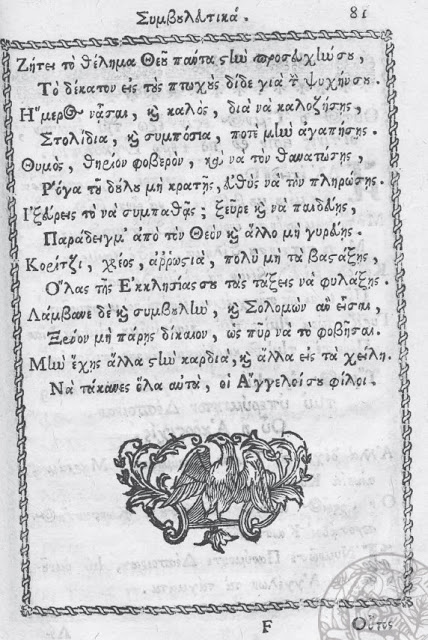 Συμβουλευτικά. 81
Ζήτει τὸ θέλημα Θεοῦ πάντα στὴν προσευχήν σου,
Τὸ δέκατον εἰς τοὺς πτωχὺς δίδε γιὰ τ ψυχήν σου.
Ἥμερος νᾆσαι, καὶ καλὸς, διὰ νὰ καλοζήσῃς,
Στολίδια, καὶ συμπόσια, ποτὲ μὴν ἀγαπήσῃς.
Θυμὸς, θηρίον φοβερὸν, καὶ νὰ τὸν θανατώσῃς,
Ῥόγα τοῦ δούλου μὴ κρατῇς, εὐθὺς νὰ τὸν πληρώσῃς.
Ἰξεύρεις τὸ νὰ συμπαθῇς; ξεῦρε καὶ νὰ παιδεύῃς,
Παράδειγμ' ἀπὸ τὸν Θεὸν καὶ ἄλλο μὴ γυρεύῃς.
Κορίτζι, χρέος, ἀῤῥωστία, πολὺ μὴ τὰ βαστάξῃς,
Ὅλας τῆς Ἐκκλησίας σου τὰς τάξεις νὰ φυλάξῃς.
Λάμβανε δὲ καὶ συμβουλὴν, καὶ Σολομὼν ἂν εἶσαι,
Ξένον μὴ πάρῃς δίκαιον, ὡς πῦρ νὰ τὸ φοβῆσαι.
Μὴν ἔχῃς ἄλλα στὴν καρδιὰ, καὶ ἄλλα εἰς τὰ χείλη.
Νὰ τάκανες ὅλα αὐτὰ, οἱ Ἄγγελοί σου φίλοι.
F Οὗτος